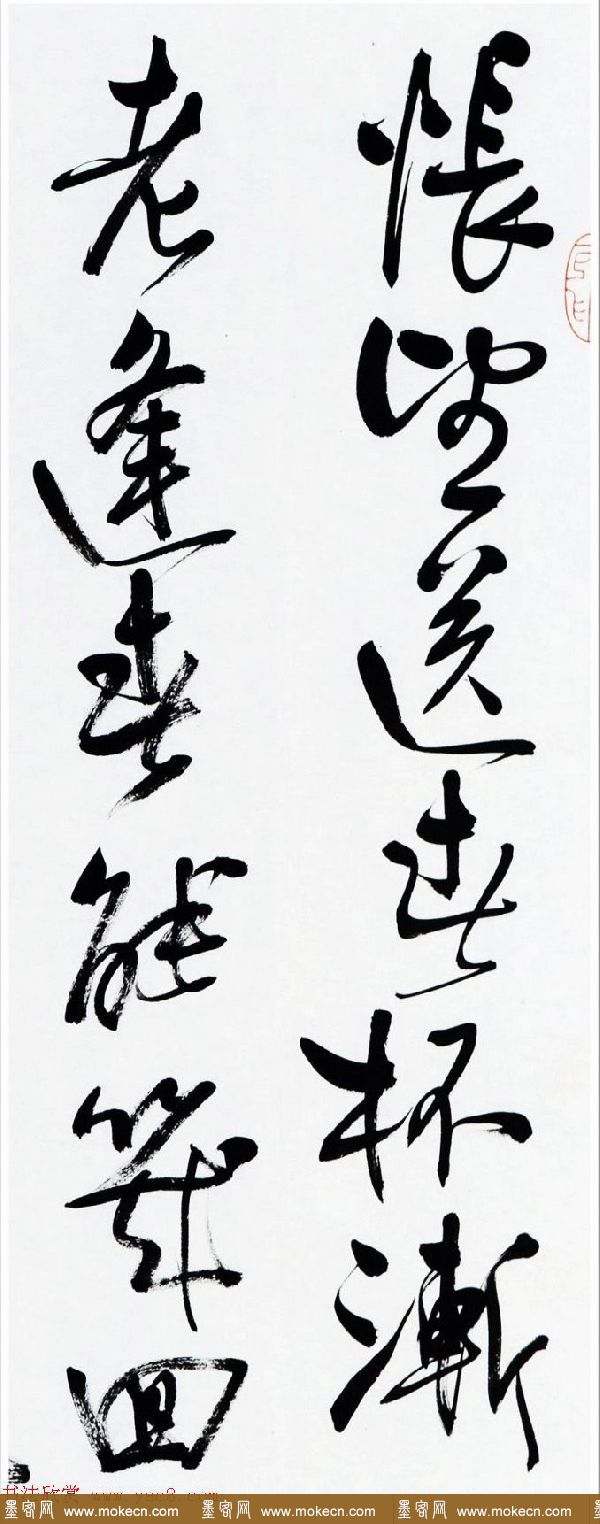 悵望送春杯漸
老逢春能幾回
书法欣赏 www.yac8.com
墨客网 www.mokecn.com 墨客网 www.mokecn.com 墨客网 www.mokecn.com